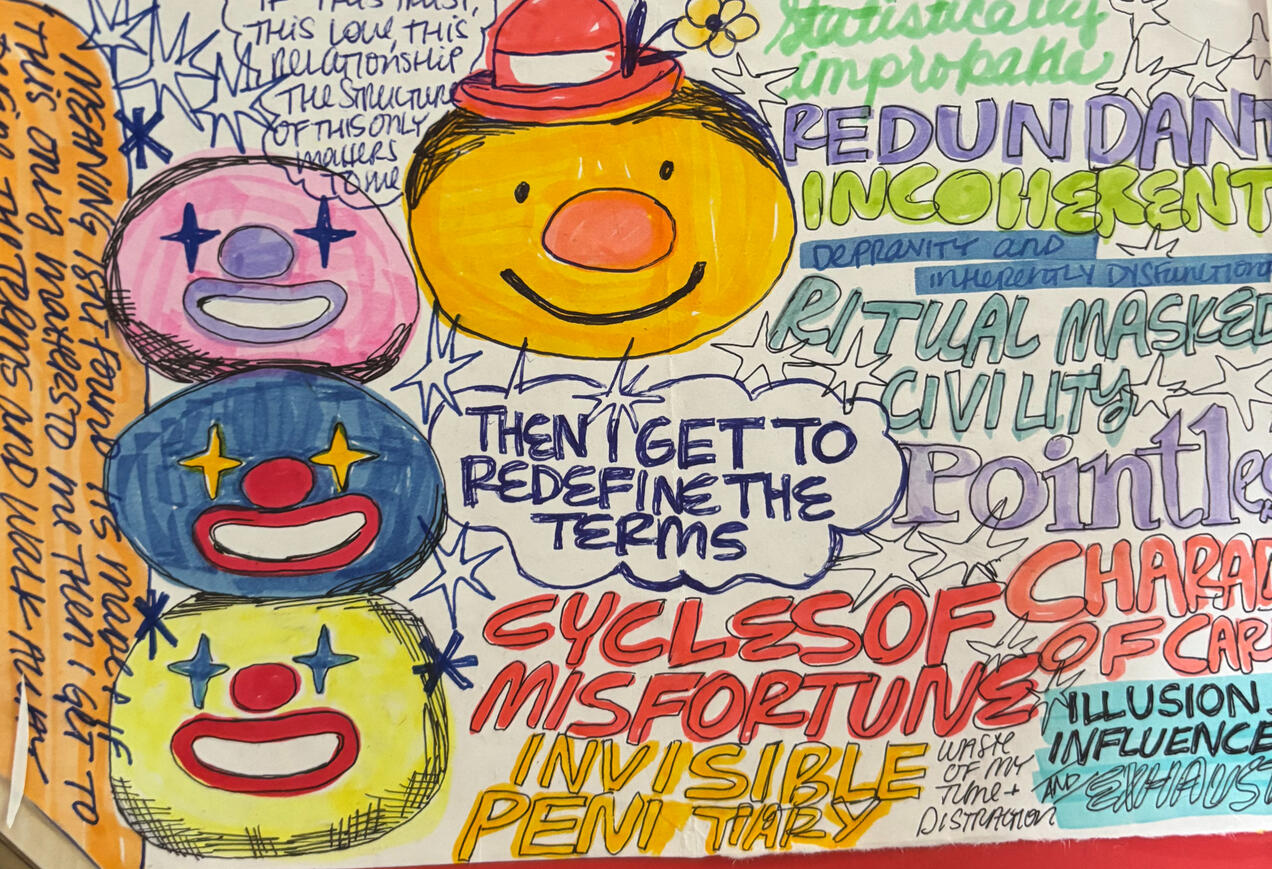 IF THIS TRUST,
THIS LOVE, THIS
RELATIONSHIP
THE STRUCTURE
OF THIS ONLY
MATTERS
TO ME
THEN I GET TO
REDEFINE THE
TERMS
MEANING ISN'T FOUND IT'S MADE IF
THIS ONLY MATTERS TO ME THEN I GET TO
THE TERMS AND WALK AWAY
Statistically
improbable
REDUNDANT
INCOHERENT
DEPRAVITY AND
INHERENTLY DYSFUNCTION
RITUAL MASKED
CIVILITY
Pointles
CHARAD
OF CAR
CYCLES OF
MISFORTUNE
INVISIBLE
PENITIARY
WASTE
OF MY
TIME +
DISTRACTION
ILLUSION
INFLUENCE
AND EXHAUST